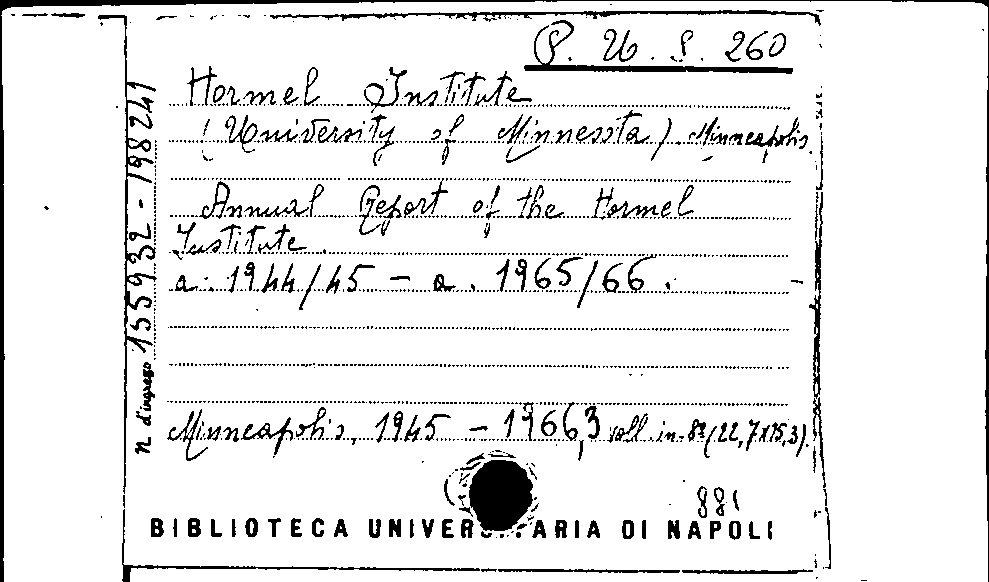 P. U. S. 260
Hormel Institute
(University of Minnesota) Minneapolis.
Annual Report of the Hormel
Institute.
a. 1944/45 - a. 1965/66.
Minneapolis, 1945 - 1966, 3 voll. in-8º (22,7x15,3).
881
BIBLIOTECA UNIVERSITARIA DI NAPOLI
n. d'ingresso 155932 - 198241